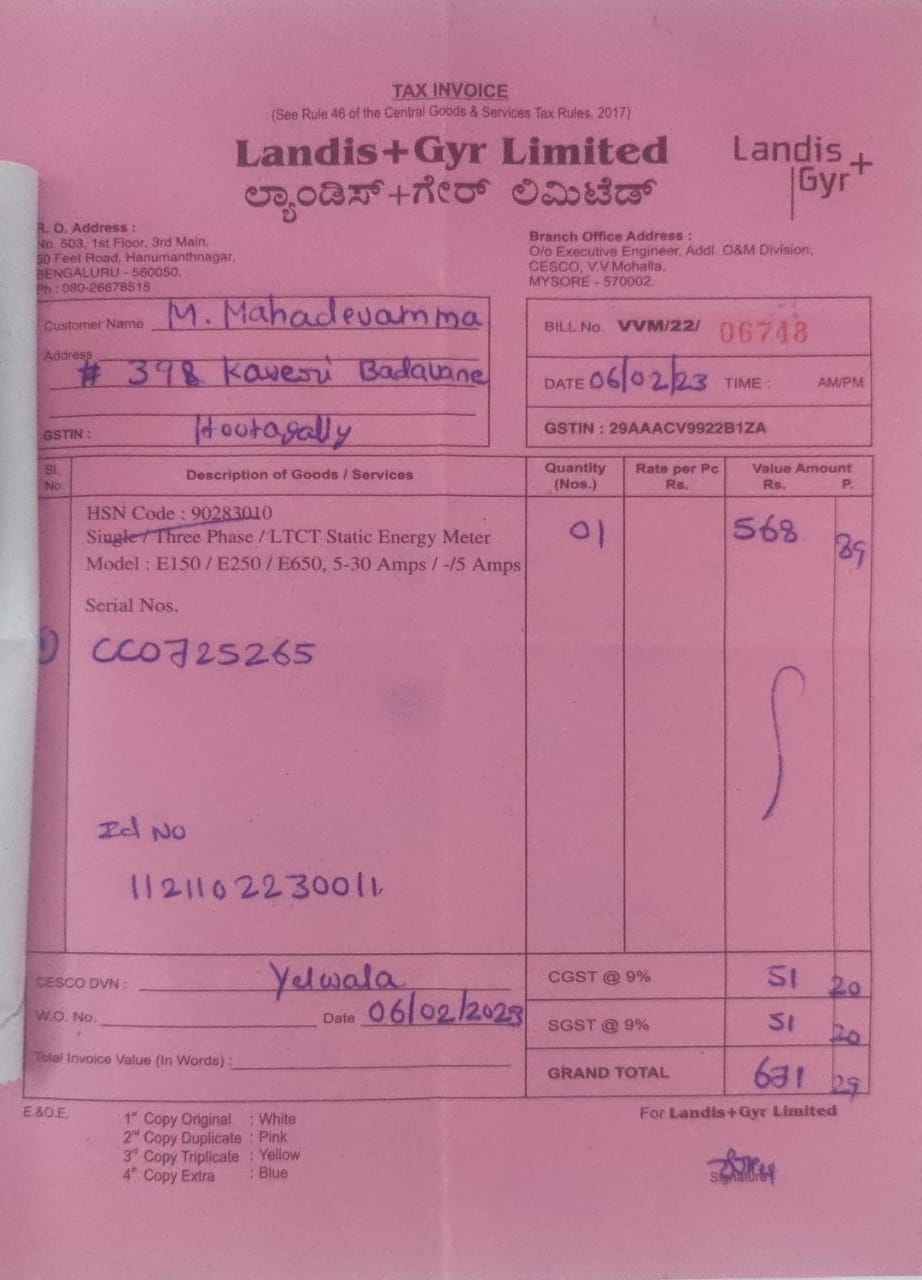 TAX INVOICE
(See Rule 46 of the Central Goods & Services Tax Rules, 2017)
Landis+Gyr Limited
ಲ್ಯಾಂಡಿಸ್+ಗೇರ್ ಲಿಮಿಟೆಡ್
Landis
Gyr+
R. O. Address :
No. 503, 1st Floor, 3rd Main,
50 Feet Road, Hanumanthnagar,
BENGALURU - 560050.
Ph : 080-26678515
Branch Office Address :
O/o Executive Engineer, Addl. O&M Division,
CESCO, V.V.Mohalla,
MYSORE - 570002.
Customer Name M. Mahadevamma
Address
# 398 Kaveri Badavane
GSTIN : Hootagally
BILL No. VVM/22/ 06748
DATE 06/02/23 TIME : AM/PM
GSTIN : 29AAACV9922B1ZA
Sl. No. Description of Goods / Services Quantity (Nos.) Rate per Pc Rs. Value Amount Rs. P.
HSN Code : 90283010
Single / Three Phase / LTCT Static Energy Meter 01 568 89
Model : E150 / E250 / E650, 5-30 Amps / -/5 Amps
Serial Nos.
1) CC0725265
Id No
1121102230011
CESCO DVN : Yelwala
W.O. No. Date 06/02/2023
Total Invoice Value (In Words) :
CGST @ 9% 51 20
SGST @ 9% 51 20
GRAND TOTAL 671 29
E.&O.E.
1st Copy Original : White
2nd Copy Duplicate : Pink
3rd Copy Triplicate : Yellow
4th Copy Extra : Blue
For Landis+Gyr Limited
Signature